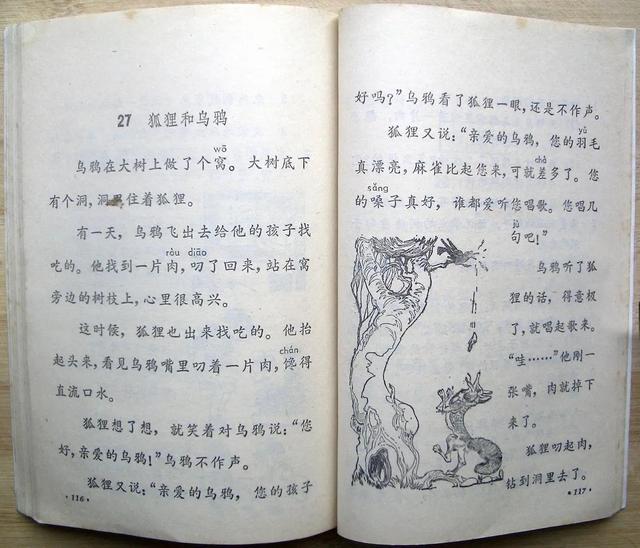 27 狐狸和乌鸦
wō
乌鸦在大树上做了个窝。大树底下
有个洞，洞里住着狐狸。
有一天，乌鸦飞出去给他的孩子找
ròu diāo
吃的。他找到一片肉，叼了回来，站在窝
旁边的树枝上，心里很高兴。
这时候，狐狸也出来找吃的。他抬
chán
起头来，看见乌鸦嘴里叼着一片肉，馋得
直流口水。
狐狸想了想，就笑着对乌鸦说：“您
好，亲爱的乌鸦！”乌鸦不作声。
狐狸又说：“亲爱的乌鸦，您的孩子
·116·
好吗？”乌鸦看了狐狸一眼，还是不作声。
yǔ
狐狸又说：“亲爱的乌鸦，您的羽毛
chà
真漂亮，麻雀比起您来，可就差多了。您
sǎng
的嗓子真好，谁都爱听您唱歌。您唱几
jù
句吧！”
乌鸦听了狐
狸的话，得意极
了，就唱起歌来。
“哇……”他刚一
张嘴，肉就掉下
来了。
狐狸叼起肉，
钻到洞里去了。
·117·